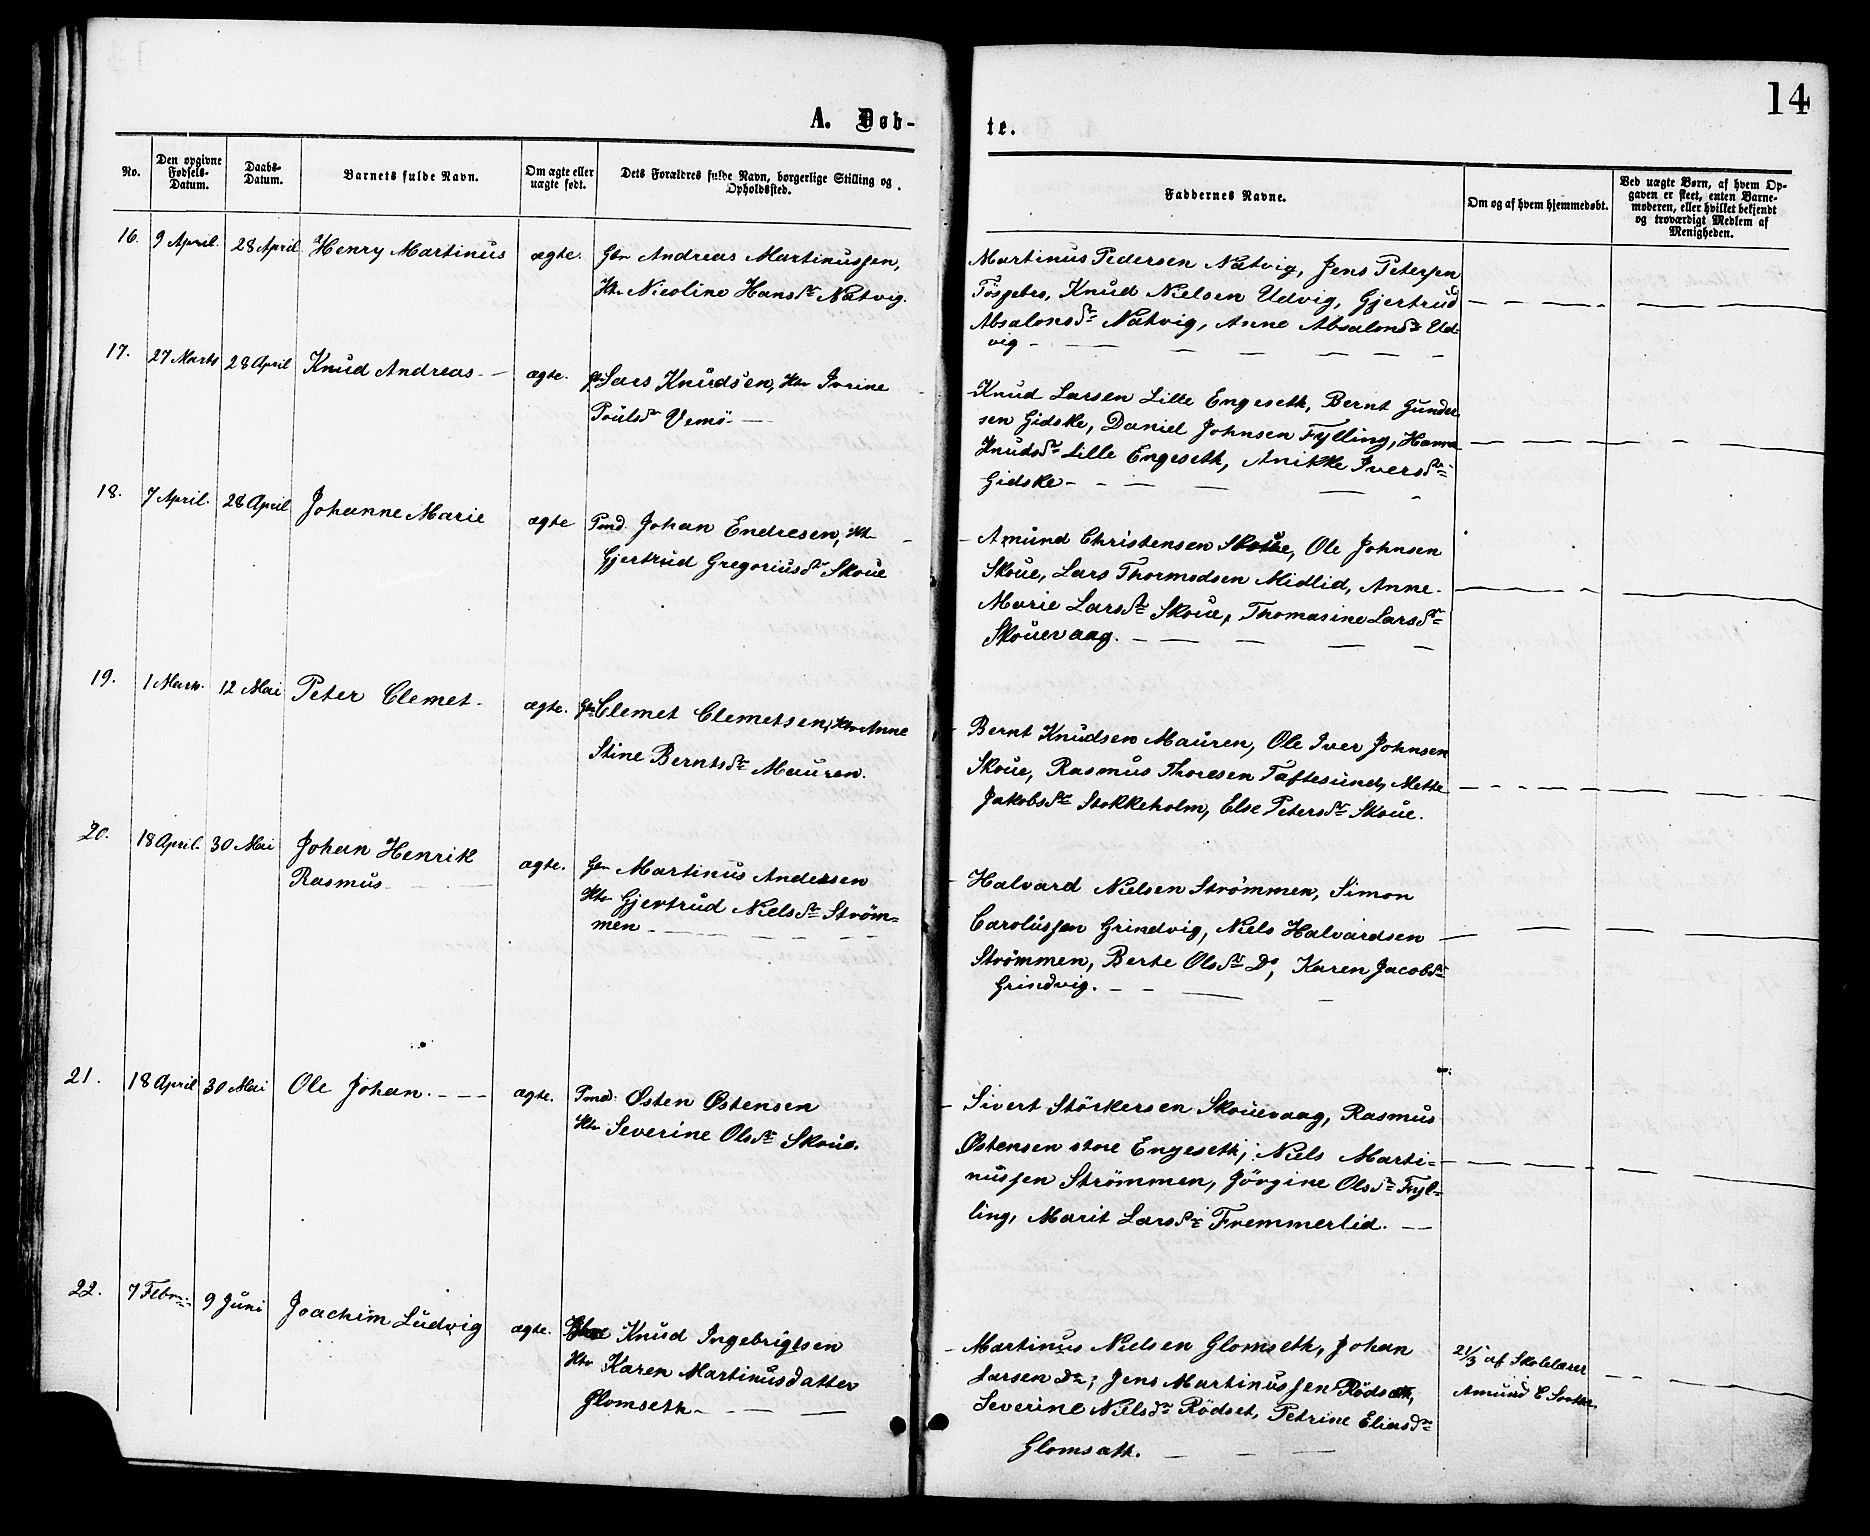 14
A. Døb-
te.
No.
Den opgivne Fødsels-Datum.
Daabs-Datum.
Barnets fulde Navn.
Om ægte eller uægte født.
Dets Forældres fulde Navn, borgerlige Stilling og Opholdssted.
Faddernes Navne.
Om og af hvem hjemmedøbt.
Ved uægte Børn, af hvem Op-
gaven er skeet, enten Barne-
moderen, eller hvilket bekjendt
og troværdigt Medlem af
Menigheden.
16. 9 April. 28 April Henry Martinus ægte. Gbr Andreas Martinussen,
Htr Nicoline Hansdr Natvig.
Martinus Pedersen Natvig, Jens Petersen
Tøssebro, Knud Nielsen Udvig, Gjertrud
Absalonsdr Natvig, Anne Absalonsdr Ud-
vig
17. 27 Marts 28 April Knud Andreas ægte. Lars Knudsen, Htr Ivrine
Poulsdr Vemö.
Knud Larsen Lille Engeseth, Bernt Gunder
sen Gidske, Daniel Johnsen Fylling, Hanna
Knudsdr Lille Engeseth, Anikke Iversdr
Gidske
18. 7 April. 28 April Johanne Marie ægte Pmd. Johan Endresen, Htr
Gjertrud Gregoriusdr Skoue
Amund Christensen Skoue, Ole Johnsen
Skoue, Lars Thormodsen Midlid, Anne
Marie Larsdr Skoue, Thomasine Larsdr
Skouevaag.
19. 1 Marts. 12 Mai Peter Clemet ægte. Gbr Clemet Clemetsen, Htr Anne
Stine Berntsdr Mauren.
Bernt Knudsen Mauren, Ole Iver Johnsen
Skoue, Rasmus Thoresen Taftesund, Mette
Jakobsdr Stokkeholm, Else Petersdr Skoue.
20. 18 April. 30 Mai Johan Henrik
Rasmus
ægte. Gbr Martinus Andersen
Htr Gjertrud Nielsdr Ström=
men
Halvard Nielsen Strömmen, Simon
Carolussen Grindvig, Niels Halvardsen
Strömmen, Berte Olsdr Do, Karen Jacobsdr
Grindvig.
21. 18 April 30 Mai Ole Johan. ægte. Pmd. Østen Østensen
Htr Severine Olsdr Skoue.
Sivert Störkersen Skouevaag, Rasmus
Østensen store Engeseth; Niels Marti=
nussen Strömmen, Jörgine Olsdr Fyl=
ling, Marit Larsdr Fremmerlid.
22. 7 Febr. 9 Juni Joachim Ludvig ægte. Knud Ingebrigtsen
Htr Karen Martinusdatter
Glomseth
Martinus Nielsen Glomseth, Johan
Larsen Do; Jens Martinussen Rödseth,
Severine Nielsdr Rödset, Petrine Eliasdr
Glomsæth.
21/3 af Skolelærer
Amund C